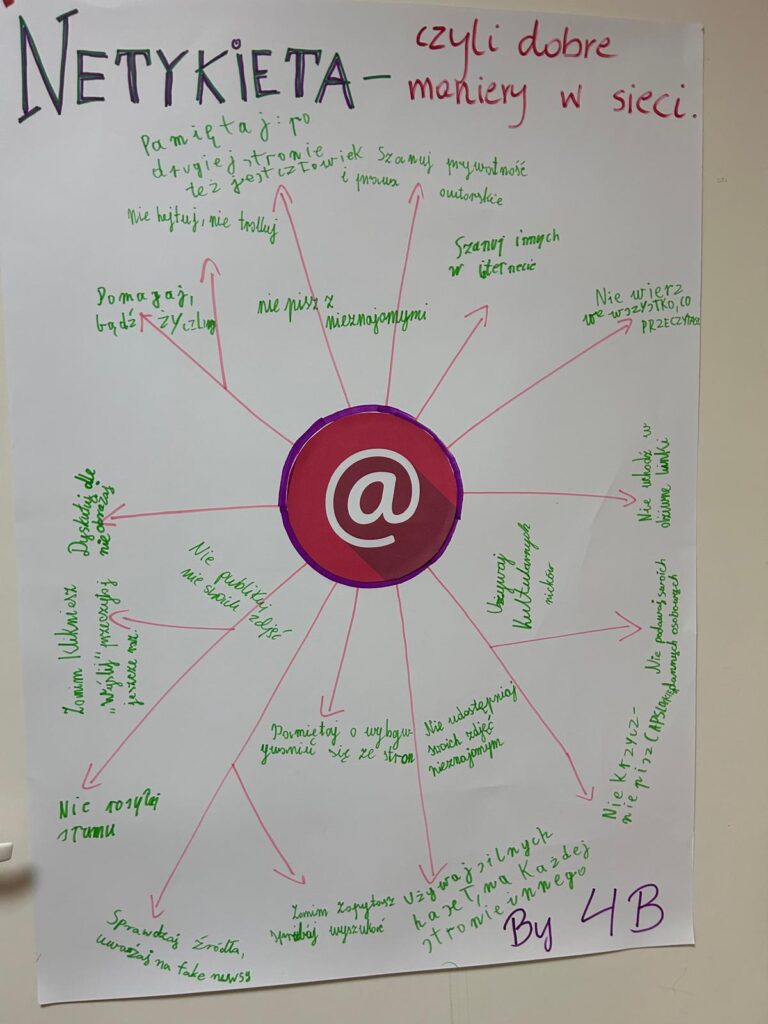 NETYKIETA - czyli dobre
maniery w sieci.
Pamiętaj: po
drugiej stronie
też jest człowiek
Szanuj prywatność
i prawa autorskie
Nie hejtuj, nie trolluj
Szanuj innych
w iternecie
Pomagaj,
bądź życzliw
nie pisz z
nieznajomymi
Nie wierz
we wszystko, co
PRZECZYTASZ
@
Dyskutuj ale
nie obrażaj
Nie wchodź w
dziwne linki
Nie publikuj
nie swoich zdjęć
Używaj
kulturarnych
nicków
Zanim klikniesz
"Wyślij" przeczytaj
jeszcze raz.
Nie podawaj swoich
dannych osobowych
Pamiętaj o
się ze stron
Nie udostępniaj
swoich zdjęć
nieznajomym
Nie krzycz -
nie pisz CAPSLOCKIEM
Nie rosyłej
spamu
Sprawdzaj źródła,
uważaj na fake newsy
Zanim zapytasz
spróbój wyszukać
Używaj silnych
haseł, na każdej
stronie innego
By 4B